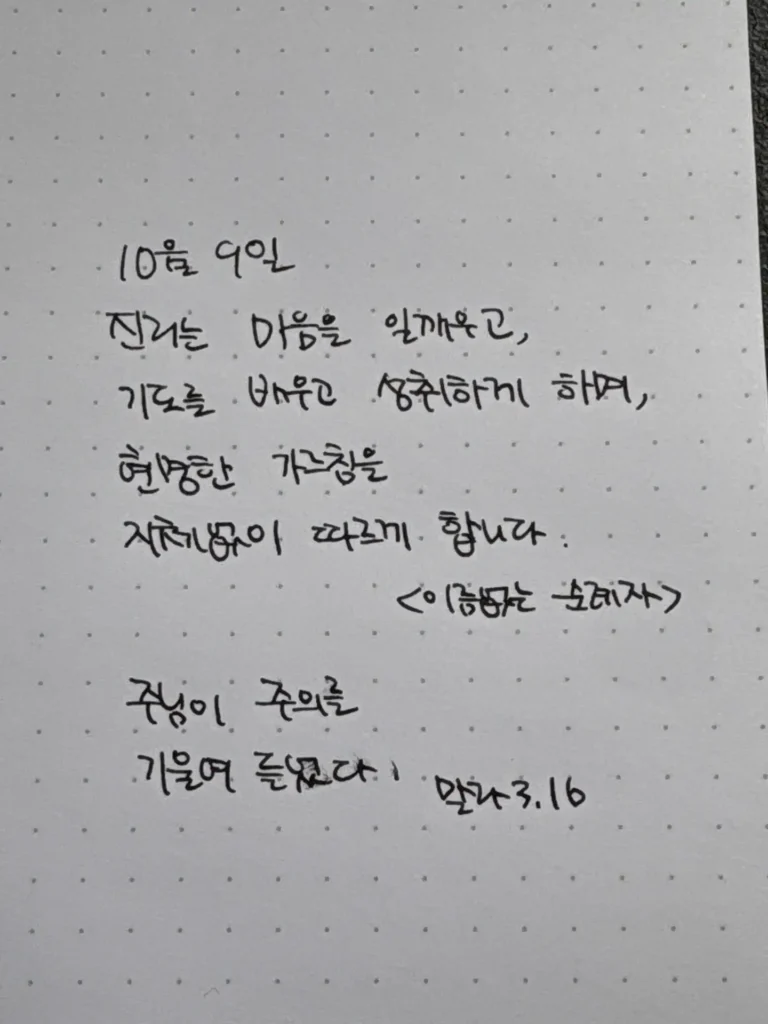 10월 9일
진리는 마음을 일깨우고,
기도를 배우고 성취하게 하며,
현명한 가르침을
지체없이 따르게 합니다.
<이름없는 순례자>
주님이 주의를
기울여 들으셨다.
말라 3.16